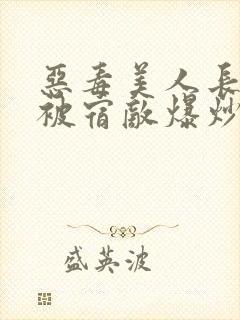 惡毒美人長
被宿敵爆炒
盛英波